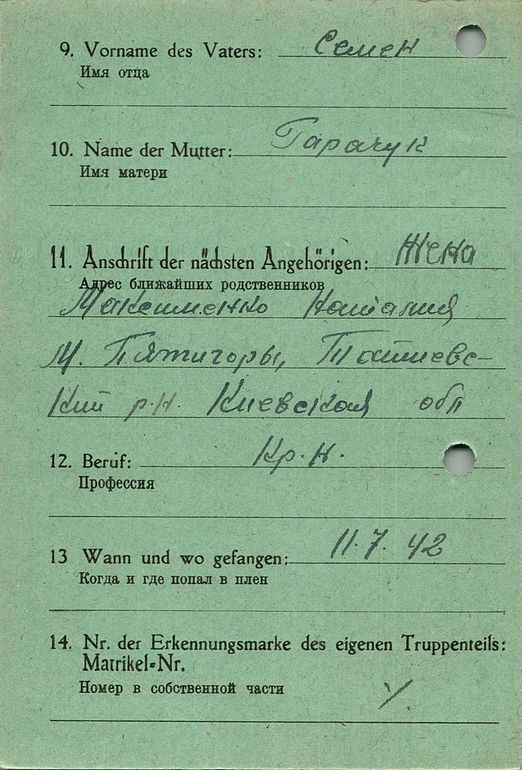 9. Vorname des Vaters: Семен
Имя отца
10. Name der Mutter: Гарачук
Имя матери
11. Anschrift der nächsten Angehörigen: Жена
Адрес ближайших родственников
Максименко Наталия
М. Пятигоры, Татиевс-
кий р.н. Киевской обл
12. Beruf: Кр.н.
Профессия
13 Wann und wo gefangen: 11.7.42
Когда и где попал в плен
14. Nr. der Erkennungsmarke des eigenen Truppenteils:
Matrikel=Nr.
Номер в собственной части